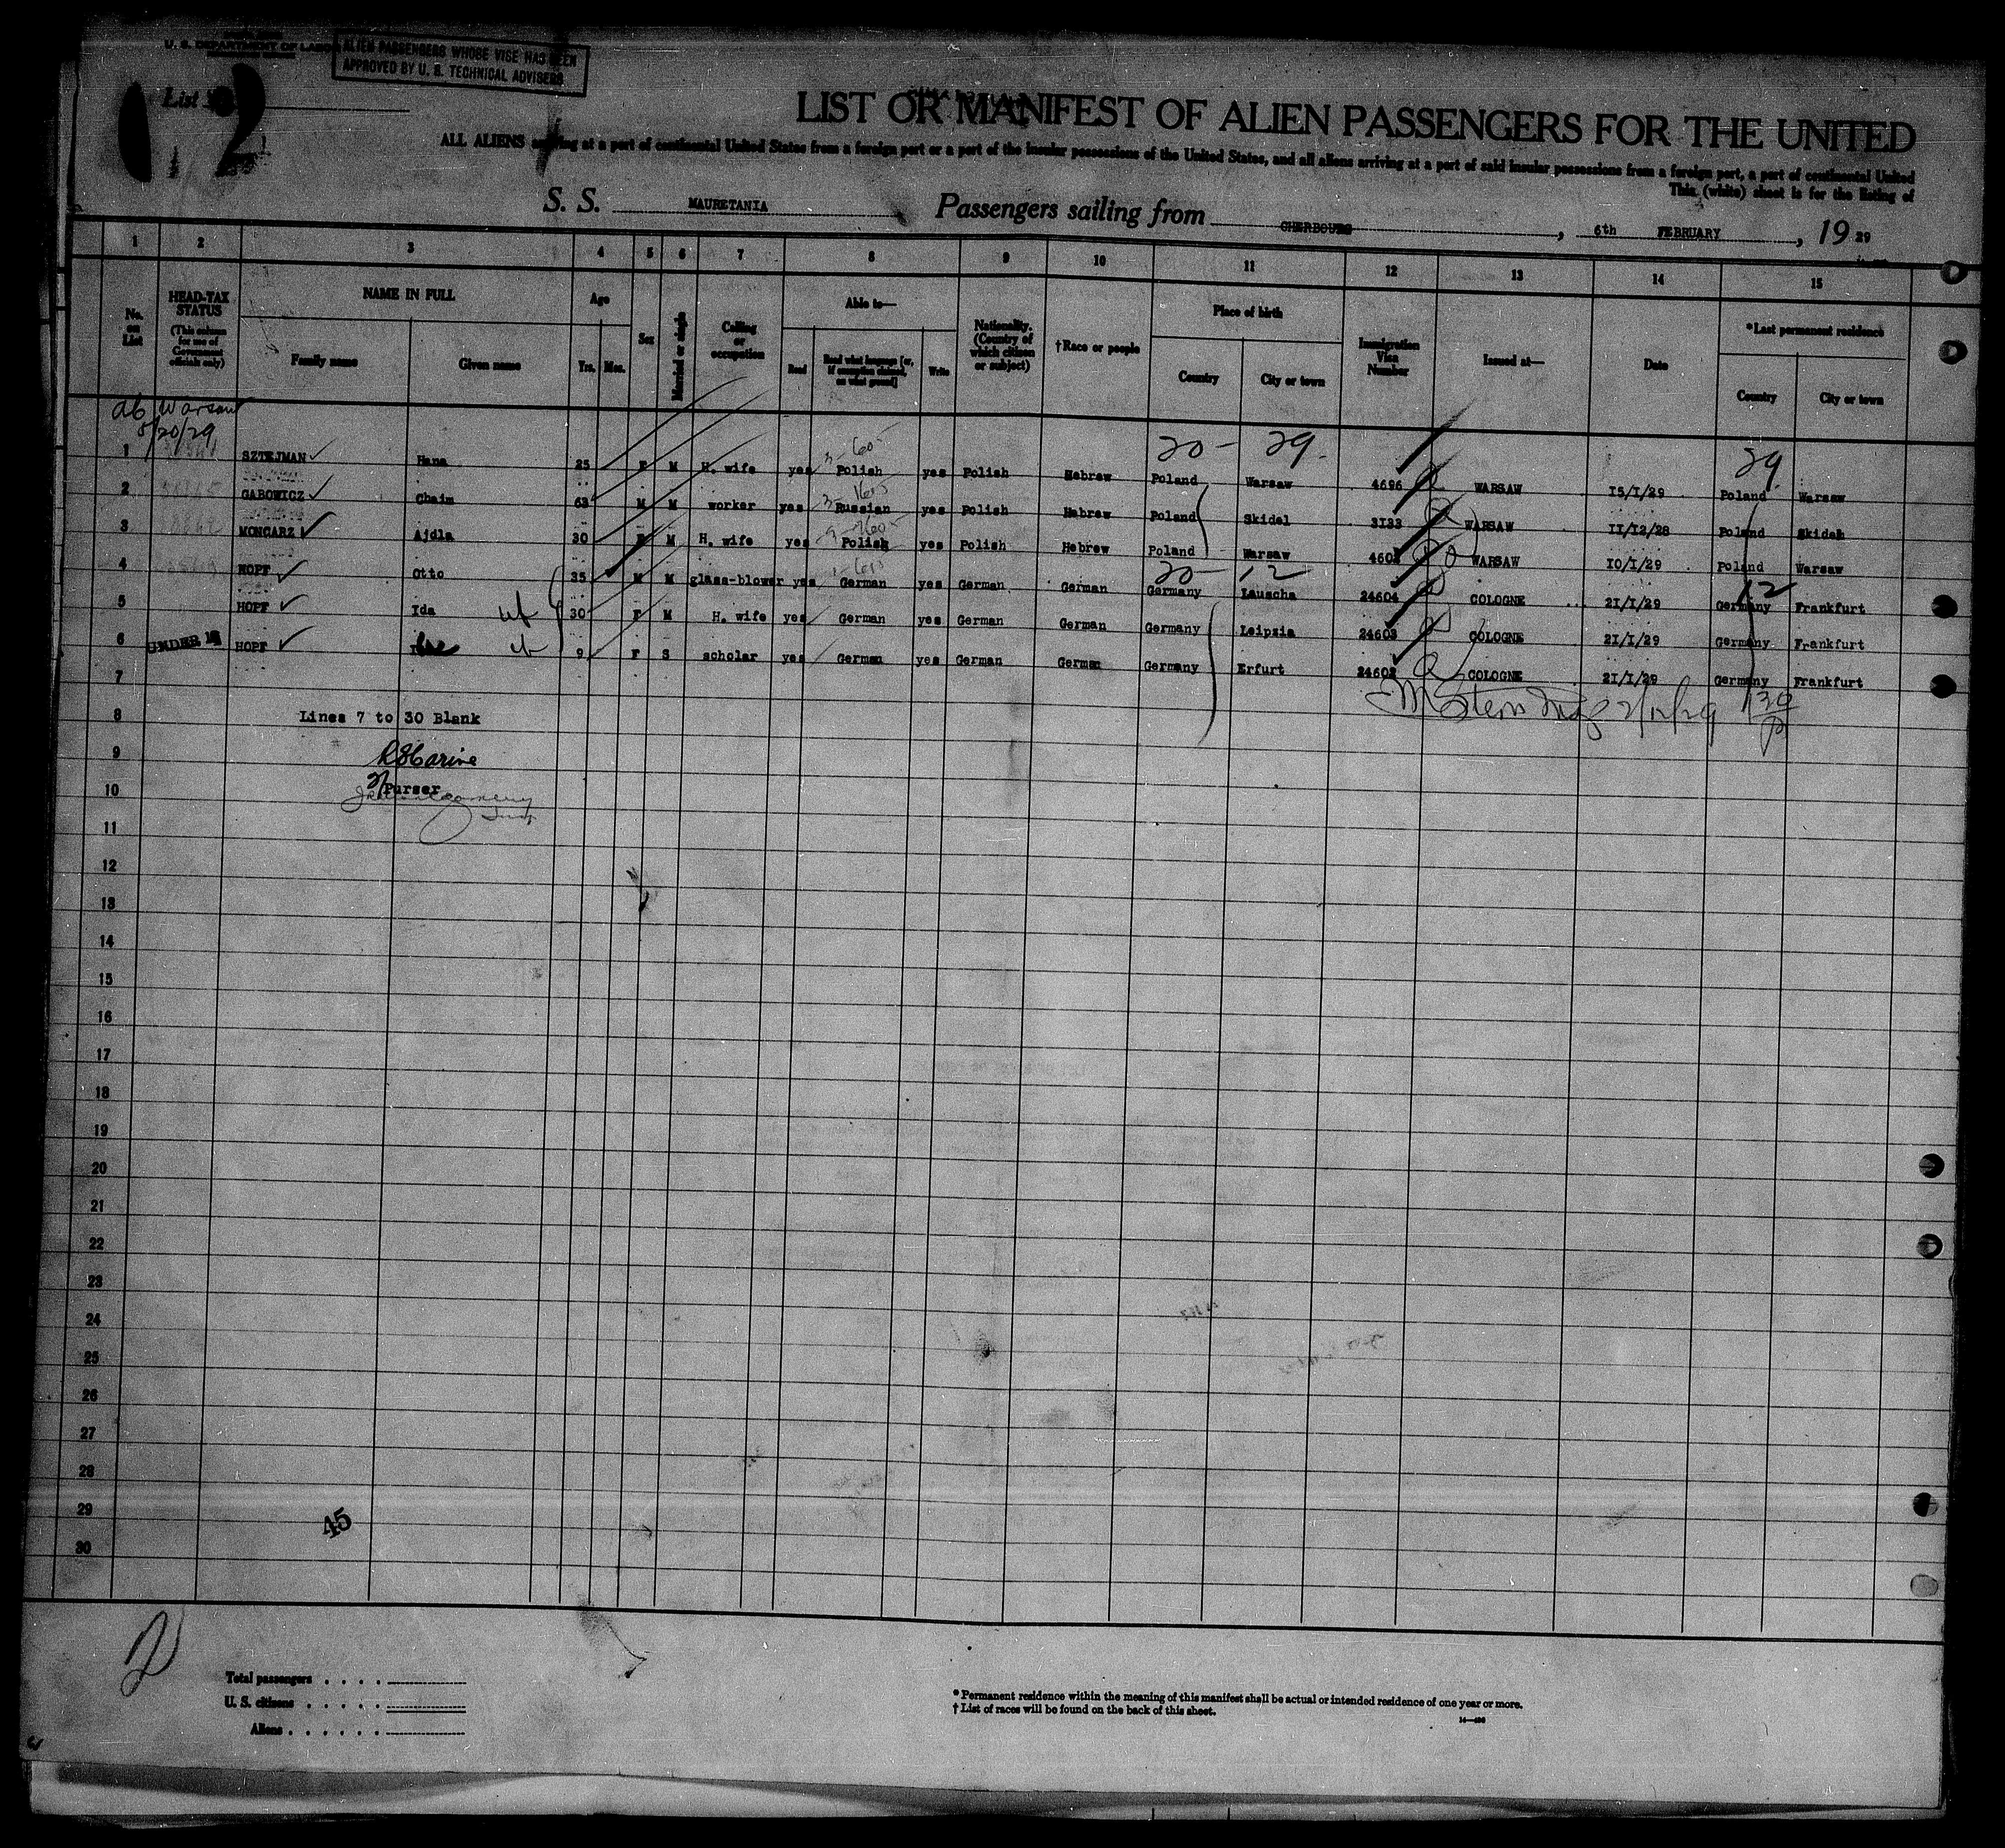 U. S. DEPARTMENT OF LABOR
ALIEN PASSENGERS WHOSE VISE HAS BEEN
APPROVED BY U. S. TECHNICAL ADVISERS
List
2
LIST OR MANIFEST OF ALIEN PASSENGERS FOR THE UNITED
ALL ALIENS arriving at a port of continental United States from a foreign port or a port of the insular possessions of the United States, and all aliens arriving at a port of said insular possessions from a foreign port, a port of continental United
This (white) sheet is for the listing of
S. S. MAURETANIA Passengers sailing from CHERBOURG, 6th FEBRUARY, 19 29
1 2 3 4 5 6 7 8 9 10 11 12 13 14 15
No. on List
HEAD-TAX STATUS (This column for use of Government officials only)
NAME IN FULL
Family name Given name
Age
Yrs. Mos.
Sex
Married or single
Calling or occupation
Able to—
Read Read what language [or, if exemption claimed, on what ground] Write
Nationality. (Country of which citizen or subject)
†Race or people
Place of birth
Country City or town
Immigration Visa Number
Issued at—
Date
*Last permanent residence
Country City or town
ab Warsaw
5/20/29
20 - 29. 29
1 SZTEJMAN Hana 25 F M H. wife yes Polish yes Polish Hebrew Poland Warsaw 4696 WARSAW 15/1/29 Poland Warsaw
2 GABOWICZ Chaim 63 M M worker yes Russian yes Polish Hebrew Poland Skidel 3133 WARSAW 11/12/28 Poland Skidel
3 MONGARZ Ajdla 30 F M H. wife yes Polish yes Polish Hebrew Poland Warsaw 4603 WARSAW 10/1/29 Poland Warsaw
20 - 12 12
4 HOPF Otto 35 M M glass-blower yes German yes German German Germany Lauscha 24604 COLOGNE 21/1/29 Germany Frankfurt
5 HOPF Ida 30 F M H. wife yes German yes German German Germany Leipzia 24603 COLOGNE 21/1/29 Germany Frankfurt
6 UNDER 16 HOPF 9 F S scholar yes German yes German German Germany Erfurt 24602 COLOGNE 21/1/29 Germany Frankfurt
7
8 Lines 7 to 30 Blank
9
10 Purser
11
12
13
14
15
16
17
18
19
20
21
22
23
24
25
26
27
28
29
45
30
Total passengers
U. S. citizens
Aliens
* Permanent residence within the meaning of this manifest shall be actual or intended residence of one year or more.
† List of races will be found on the back of this sheet.